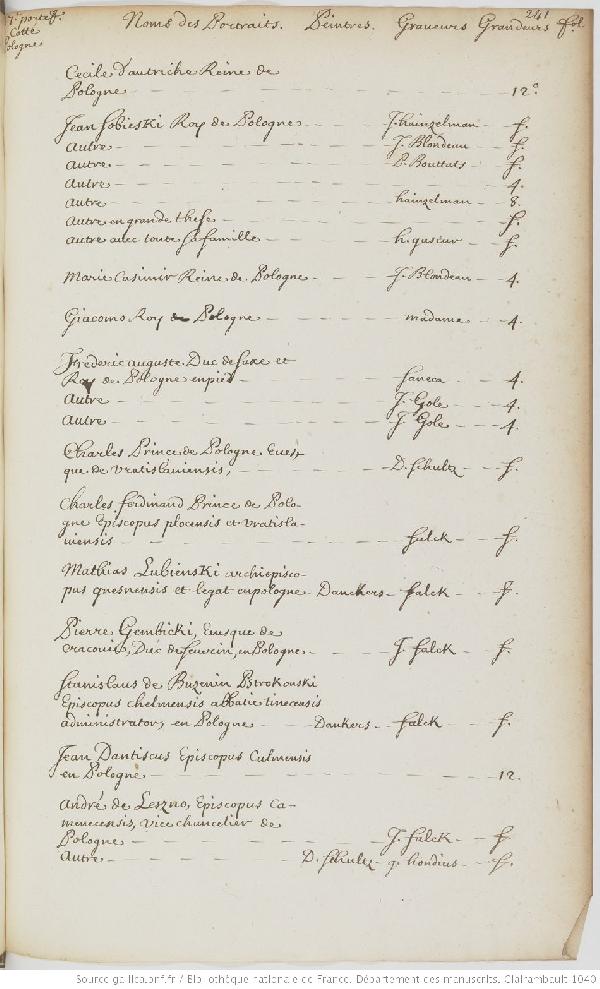 241
7. portef. Noms des Portraits. Peintres. Graveurs Grandeurs fol.
Cotté
Pologne
Cecile d'autriche Reine de
Pologne 12°
Jean Sobieski Roy de Pologne J. hainzelman f.
autre J. Blondeau f.
autre P. Bouttats f.
autre 4.
autre hainzelman 8.
autre en grande these f.
autre avec toute sa famille h. gascar f.
Marie Casimir Reine de Pologne J. Blondeau 4.
Giacomo Roy de Pologne madame 4.
Frederic auguste Duc de saxe et
Roy de Pologne en pied 4.
autre J. Gole 4.
autre J. Gole 4.
Charles Prince de Pologne Eves-
que de vratislaviensis, D. schultz f.
Charles ferdinand Prince de Polo-
gne Episcopus plocensis et vratisla-
viensis falck f.
Mathias Lubienski archiepisco-
pus gnesnensis et legat en pologne Danckers falck f.
Pierre Gembicki, Evesque de
cracovie, Duc de severin, en Pologne J. falck f.
Stanislaus de Buzenin Pstrokonski
Episcopus chelmensis abbatiæ tinecensis
administrator, en Pologne Dankers falck f.
Jean Dantiscus Episcopus Culmensis
en Pologne 12.
André de Leszno, Episcopus Ca-
menecensis, vice chancelier de
Pologne J. falck f.
autre D. schultz g. hondius f.
Source gallica.bnf.fr / Bibliothèque nationale de France. Département des manuscrits. Clairambault 1040